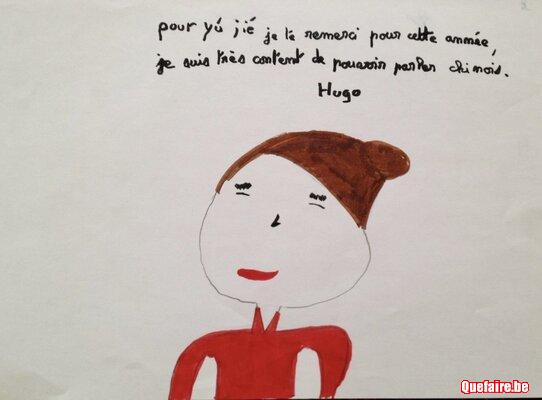 pour yú jié je te remerci pour cette année,
je suis très content de pouvoir parler chinois.
Hugo
Quefaire.be